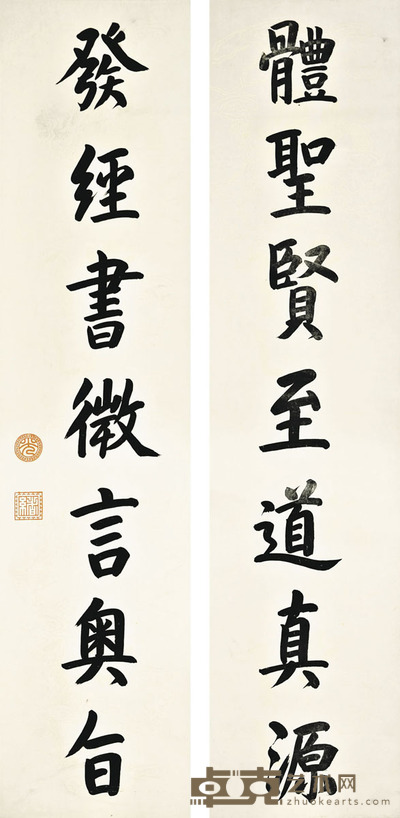 體聖賢至道真源
發經書微言奧旨
卓克艺术网
zhuokearts.com